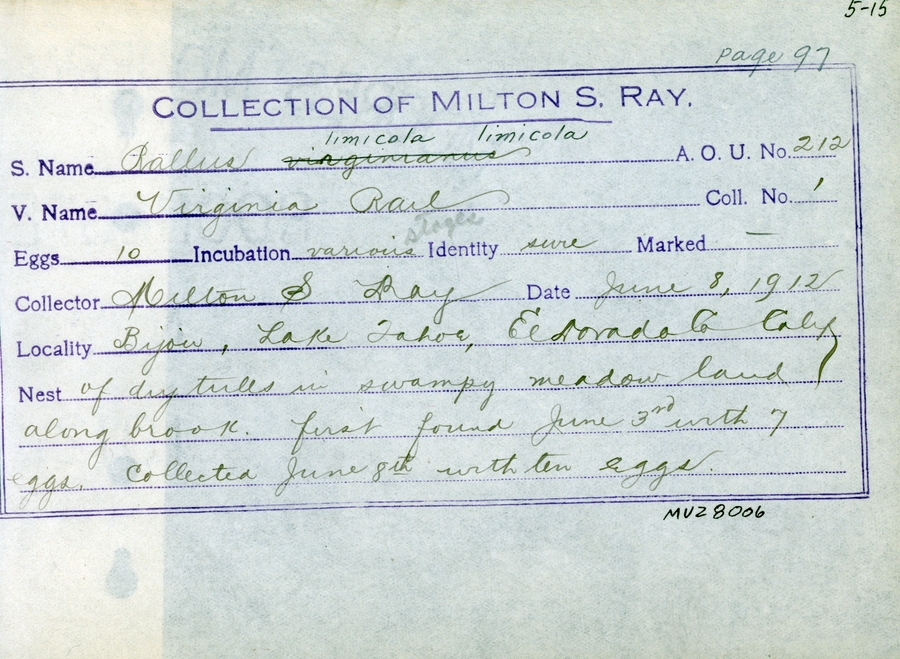 5-15
page 97
COLLECTION OF MILTON S. RAY.
limicola limicola
S. Name Rallus virginianus A. O. U. No. 212
V. Name Virginia Rail Coll. No. 1
stages
Eggs 10 Incubation various Identity sure Marked —
Collector Milton S Ray Date June 8, 1912
Locality Bijou, Lake Tahoe, El Dorado Co Calif
Nest of dry tules in swampy meadow land
along brook. first found June 3rd with 7
eggs. Collected June 8th with ten eggs.
MVZ8006